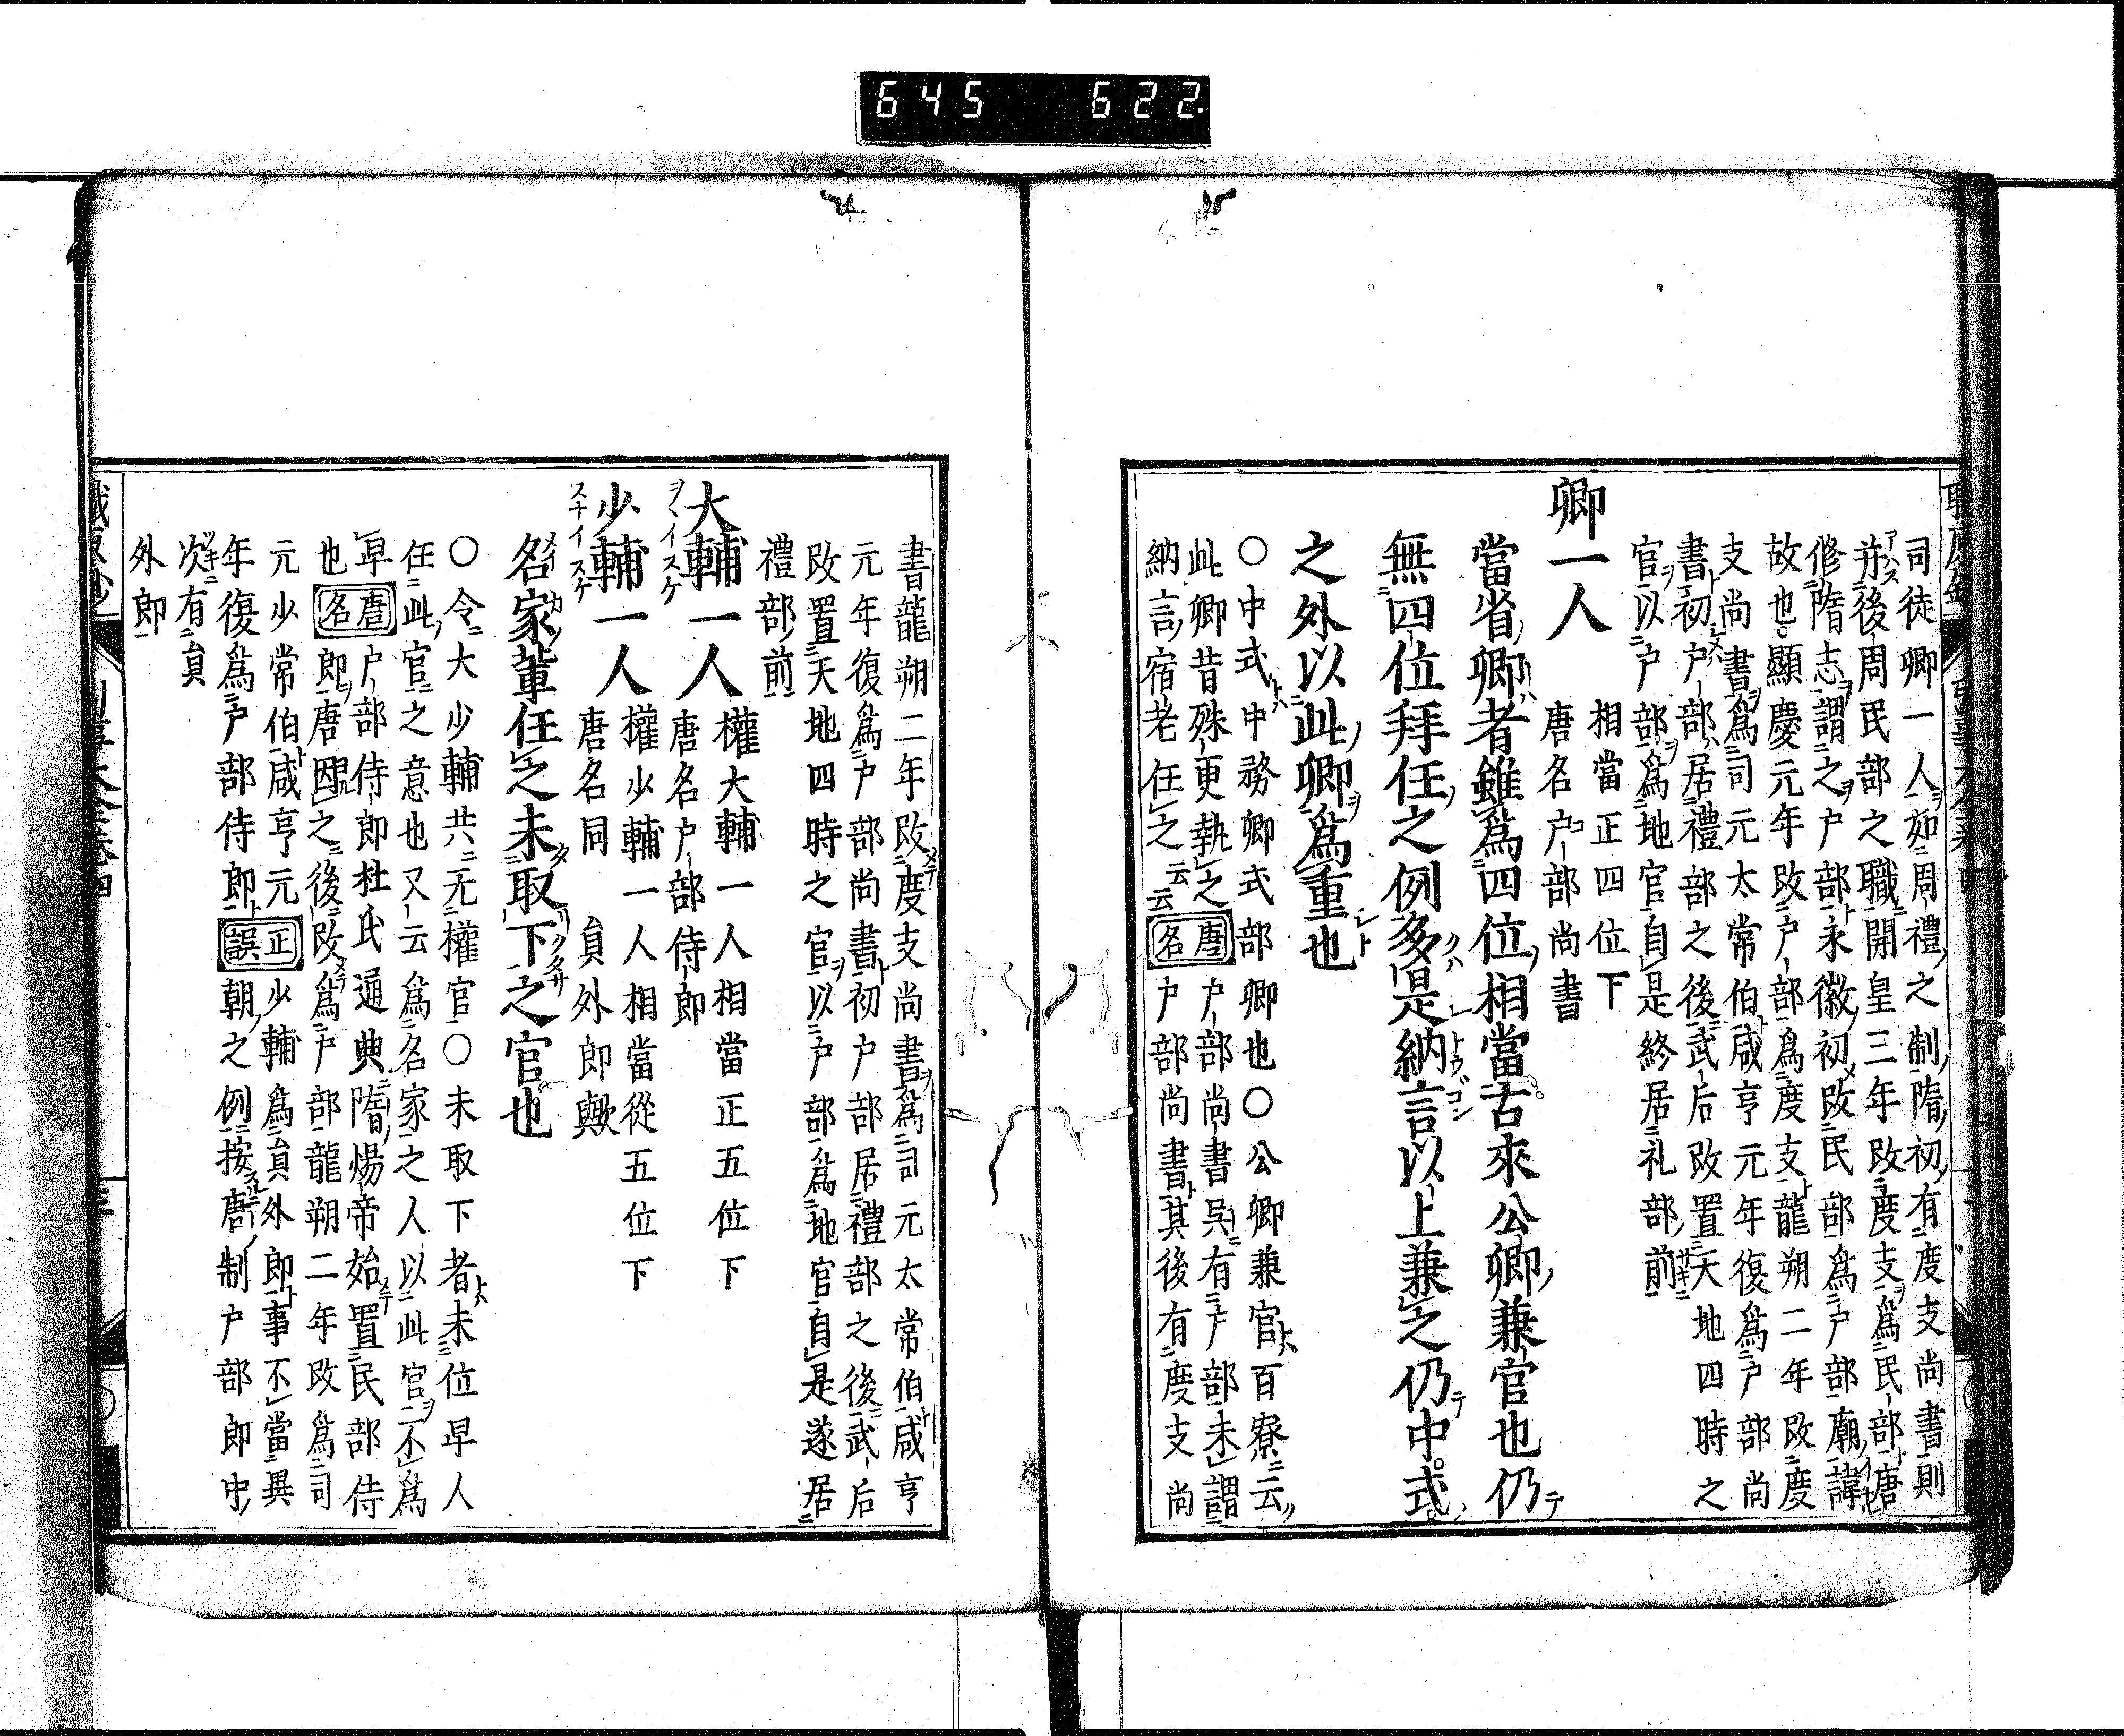 645 622
司徒卿一人如周禮之制隋初有度支尚書則
并後周民部之職開皇三年改度支爲民部唐
修隋志謂之戸部永徽初改民部爲戸部廟諱
故也顯慶元年改戸部爲度支龍朔二年改度
支尚書爲司元太常伯咸亨元年復爲戸部尚
書初戸部居禮部之後武后改置天地四時之
官以戸部爲地官自是終居礼部前
卿一人 相當正四位下
唐名戸部尚書
當省卿者雖爲四位相當古來公卿兼官也仍
無四位拜任之例多是納言以上兼之仍中式
之外以此卿爲重也
〇中式中務卿式部卿也〇公卿兼官百寮ニ云
此卿昔殊更執之唐名戸部尚書呉有戸部未謂
納言宿老任之云云 戸部尚書其後有度支尚
書龍朔二年改度支尚書爲司元太常伯咸亨
元年復爲戸部尚書初戸部居禮部之後武后
改置天地四時之官以戸部爲地官自是遂居
禮部前
大輔一人 權大輔一人相當正五位下
ヲヽイスケ 唐名戸部侍郎
少輔一人 權少輔一人相當從五位下
スナイスケ 唐名同 員外郎歟
名家輩任之未取下之官也
〇令大少輔共无權官〇未取下者未位早人
任此官之意也又云爲名家之人以此官不爲
早唐名戸部侍郎杜氏通典隋煬帝始置民部侍
也 郎唐因之後改爲戸部龍朔二年改爲司
元少常伯咸亨元正誤少輔爲員外郎事不當異
年復爲戸部侍郎 朝之例按唐制戸部郎中
次有員
外郎